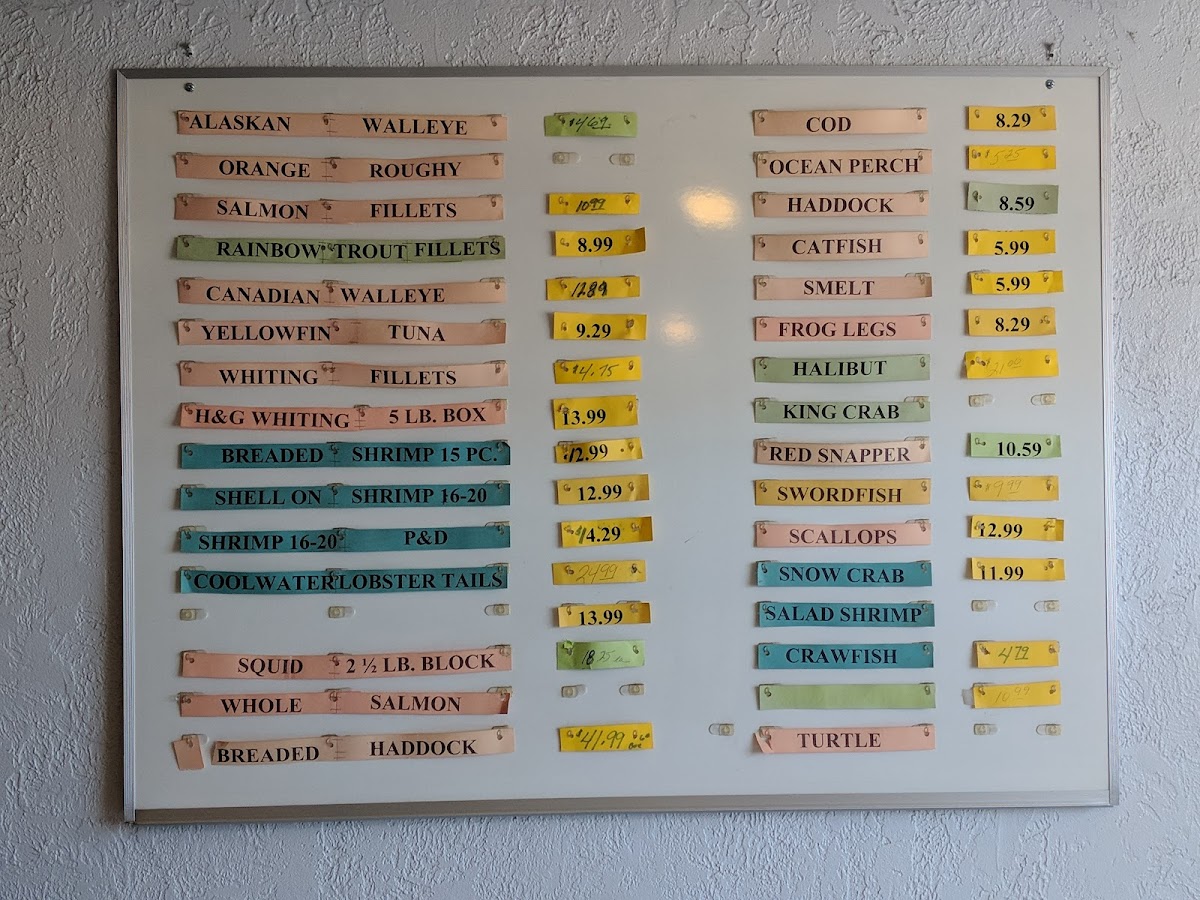 ALASKAN WALLEYE $4.69
ORANGE ROUGHY
SALMON FILLETS 10.99
RAINBOW TROUT FILLETS 8.99
CANADIAN WALLEYE 12.89
YELLOWFIN TUNA 9.29
WHITING FILLETS $4.75
H&G WHITING 5 LB. BOX 13.99
BREADED SHRIMP 15 PC. 12.99
SHELL ON SHRIMP 16-20 12.99
SHRIMP 16-20 P&D 14.29
COOLWATER LOBSTER TAILS 24.99
13.99
SQUID 2 ½ LB. BLOCK 18.25
WHOLE SALMON
BREADED HADDOCK $41.99
COD 8.29
OCEAN PERCH
HADDOCK 8.59
CATFISH 5.99
SMELT 5.99
FROG LEGS 8.29
HALIBUT
KING CRAB
RED SNAPPER 10.59
SWORDFISH $9.99
SCALLOPS 12.99
SNOW CRAB 11.99
SALAD SHRIMP
CRAWFISH 4.79
10.99
TURTLE